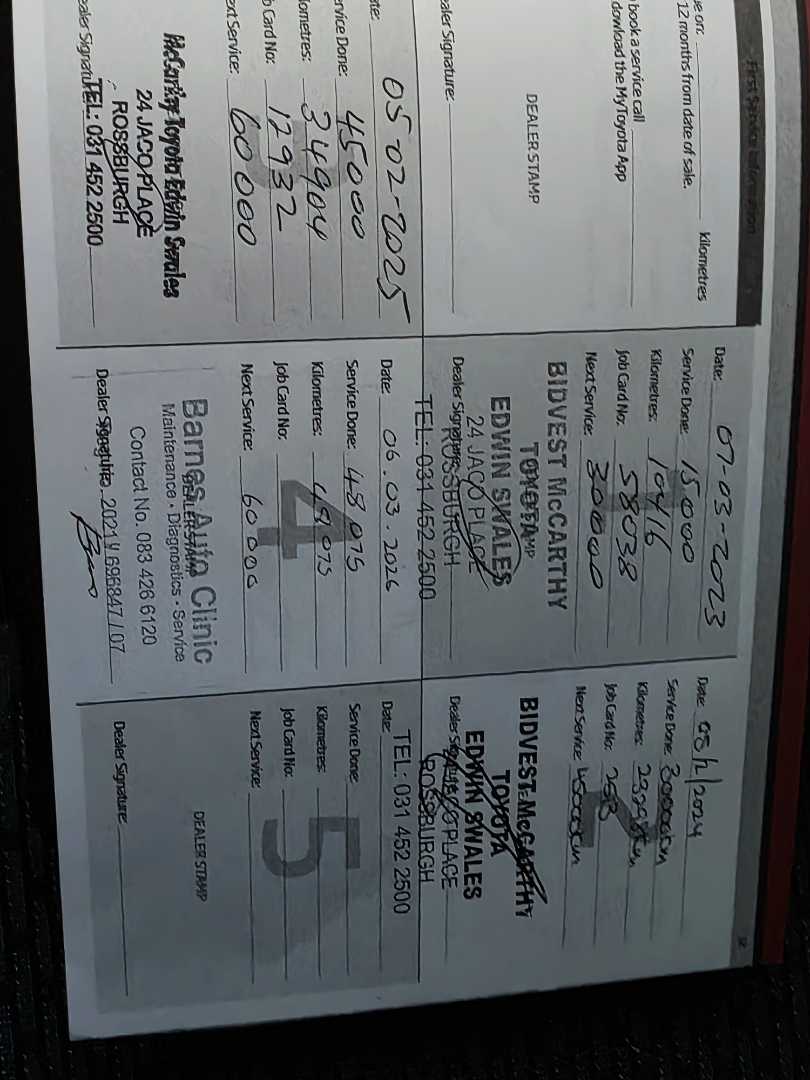 First Service Information
Kilometres
12 months from date of sale.
book a service call
dowload the MyToyota App
DEALER STAMP
Dealer Signature:
Date: 07-03-2023
Service Done: 15 000
Kilometres: 10416
Job Card No: 58038
Next Service: 30000
BIDVEST McCARTHY
TOYOTA
EDWIN SWALES
24 JACO PLACE
Dealer Signature:
ROSSBURGH
TEL: 031 452 2500
Date: 05/2/2024
Service Done: 30000km
Kilometres:
Job Card No:
Next Service: 45000km
BIDVEST McCARTHY
TOYOTA
EDWIN SWALES
24 JACO PLACE
Dealer Signature:
ROSSBURGH
TEL: 031 452 2500
05-02-2025
Service Done: 45000
Kilometres: 34904
Job Card No: 12932
Next Service: 60 000
McCarthy Toyota Edwin Swales
24 JACO PLACE
ROSSBURGH
Dealer Signature:
TEL: 031 452 2500
4
Date: 06.03.2026
Service Done: 48 075
Kilometres: 48 075
Job Card No:
Next Service: 60 000
Barnes Auto Clinic
DEALER STAMP
Maintenance • Diagnostics • Service
Contact No. 083 426 6120
Dealer Signature: 2021 / 696847 / 07
5
Date:
Service Done:
Kilometres:
Job Card No:
Next Service:
DEALER STAMP
Dealer Signature: